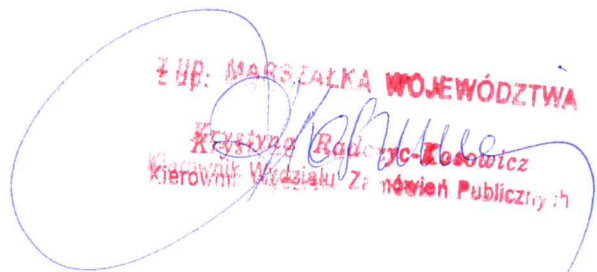 Z up. MARSZAŁKA WOJEWÓDZTWA
Krystyna
Kierownik Wydziału Zamówień Publicznych